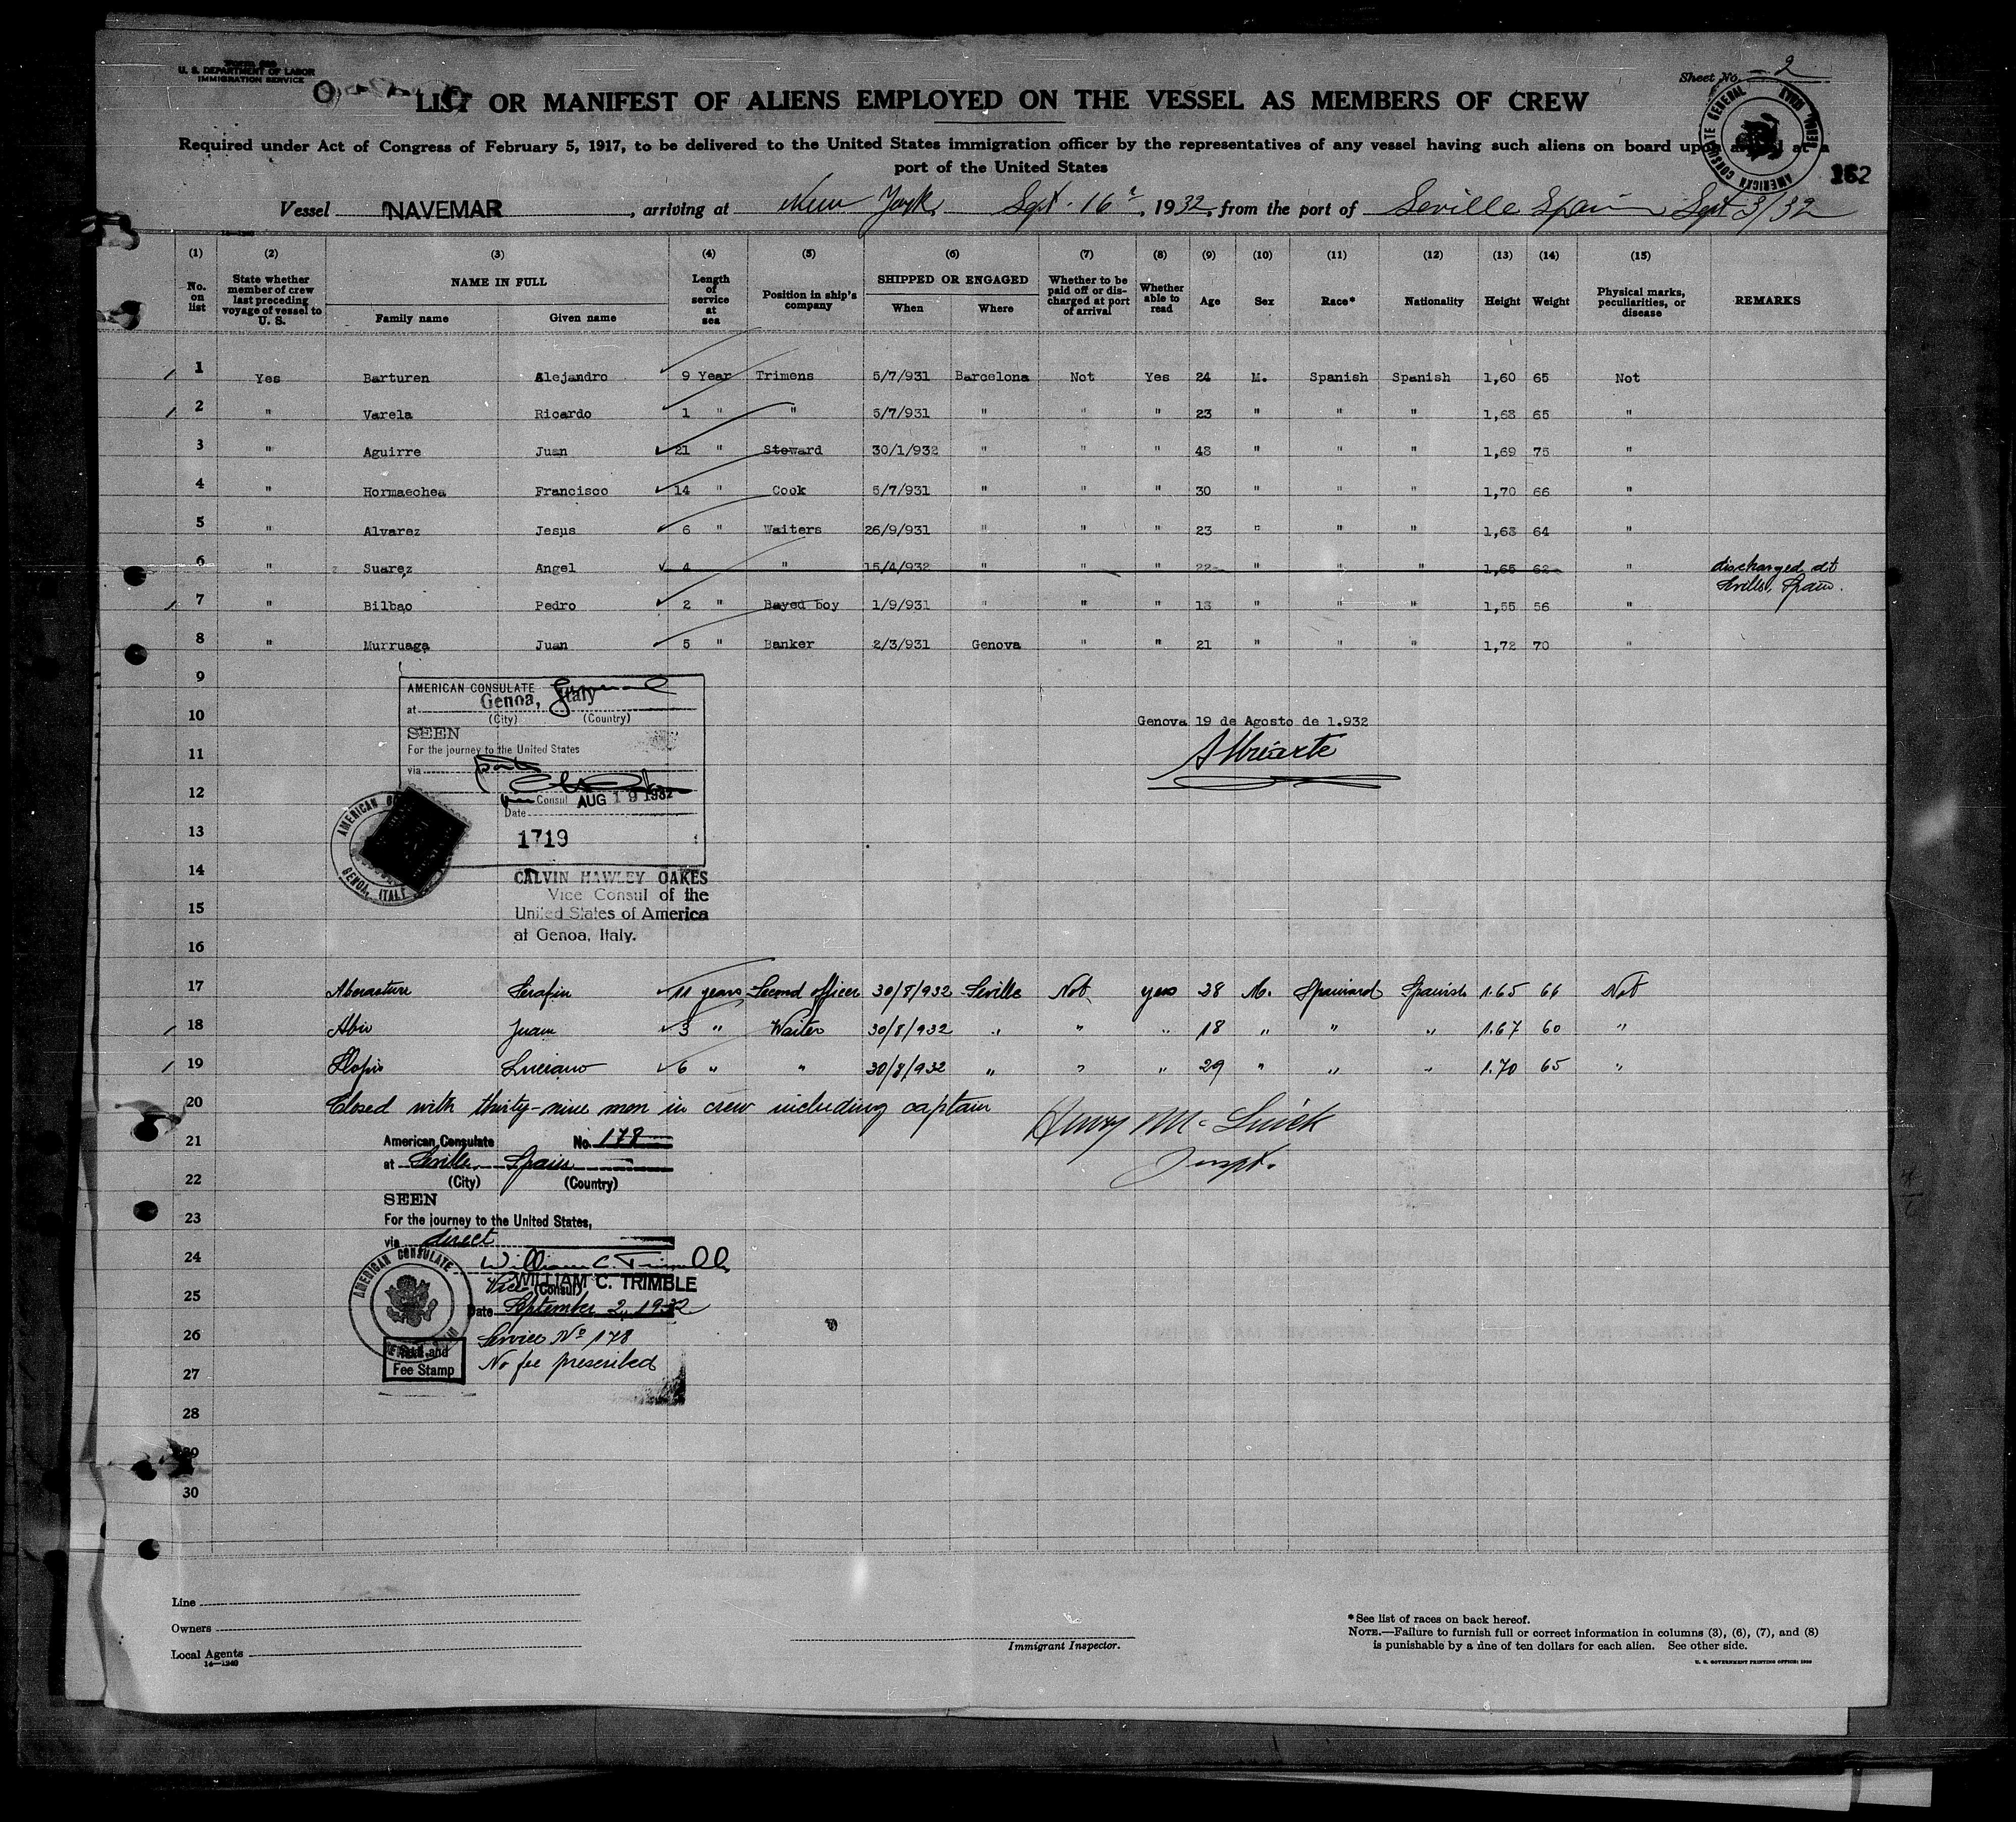 Form 689
U. S. DEPARTMENT OF LABOR
IMMIGRATION SERVICE
Sheet No. 2
LIST OR MANIFEST OF ALIENS EMPLOYED ON THE VESSEL AS MEMBERS OF CREW
Required under Act of Congress of February 5, 1917, to be delivered to the United States immigration officer by the representatives of any vessel having such aliens on board upon arrival at a
port of the United States
AMERICAN CONSULATE GENERAL
162
Vessel NAVEMAR, arriving at New York, Sept. 16, 1932, from the port of Seville Spain, Sept 3/32
(1) (2) (3) (4) (5) (6) (7) (8) (9) (10) (11) (12) (13) (14) (15)
No. on list State whether member of crew last preceding voyage of vessel to U. S. NAME IN FULL Family name Given name Length of service at sea Position in ship's company SHIPPED OR ENGAGED When Where Whether to be paid off or discharged at port of arrival Whether able to read Age Sex Race* Nationality Height Weight Physical marks, peculiarities, or disease REMARKS
1 Yes Barturen Alejandro 9 Year Trimens 5/7/931 Barcelona Not Yes 24 M. Spanish Spanish 1,60 65 Not
2 " Varela Ricardo 1 " " 5/7/931 " " " 23 " " " 1,68 65 "
3 " Aguirre Juan 21 " Steward 30/1/932 " " " 48 " " " 1,69 75 "
4 " Hormaechea Francisco 14 " Cook 5/7/931 " " " 30 " " " 1,70 66 "
5 " Alvarez Jesus 6 " Waiters 26/9/931 " " " 23 " " " 1,63 64 "
6 " Suarez Angel 4 " 15/4/932 " " " 22 " " " 1,65 62 " discharged at Seville, Spain.
7 " Bilbao Pedro 2 " Bayed boy 1/9/931 " " " 18 " " " 1,55 56 "
8 " Murruaga Juan 5 " Banker 2/3/931 Genova " " 21 " " " 1,72 70 "
9
AMERICAN CONSULATE
10
at Genoa, Italy
(City) (Country)
Genova 19 de Agosto de 1.932
SEEN
For the journey to the United States
11
via
AUriarte
12
Consul AUG 19 1932
Date
13
1719
AMERICAN
GENOA, ITALY
14
CALVIN HAWLEY OAKES
Vice Consul of the
15
United States of America
at Genoa, Italy.
16
17 Aberasture Serafin 11 years Second officer 30/8/932 Seville Not yes 38 M. Spaniard Spanish 1.65 66 Not
18 Juan 3 " Waiter 30/8/932 " " " 18 " " " 1.67 60 "
19 Llopis Luciano 6 " " 30/8/932 " " " 29 " " " 1.70 65 "
20 Closed with thirty-nine men in crew including captain
Henry Mc
Inspt.
21
American Consulate No. 178
at Seville, Spain
22
(City) (Country)
SEEN
23
For the journey to the United States,
via direct
24
AMERICAN CONSULATE
William C. Trimble
WILLIAM C. TRIMBLE
Vice (Consul)
25
Date September 2, 1932
26
Service No 178
No fee prescribed
Fee Stamp
27
28
29
30
Line
Owners
Local Agents
14—1240
Immigrant Inspector.
* See list of races on back hereof.
NOTE.—Failure to furnish full or correct information in columns (3), (6), (7), and (8)
is punishable by a fine of ten dollars for each alien. See other side.
U. S. GOVERNMENT PRINTING OFFICE: